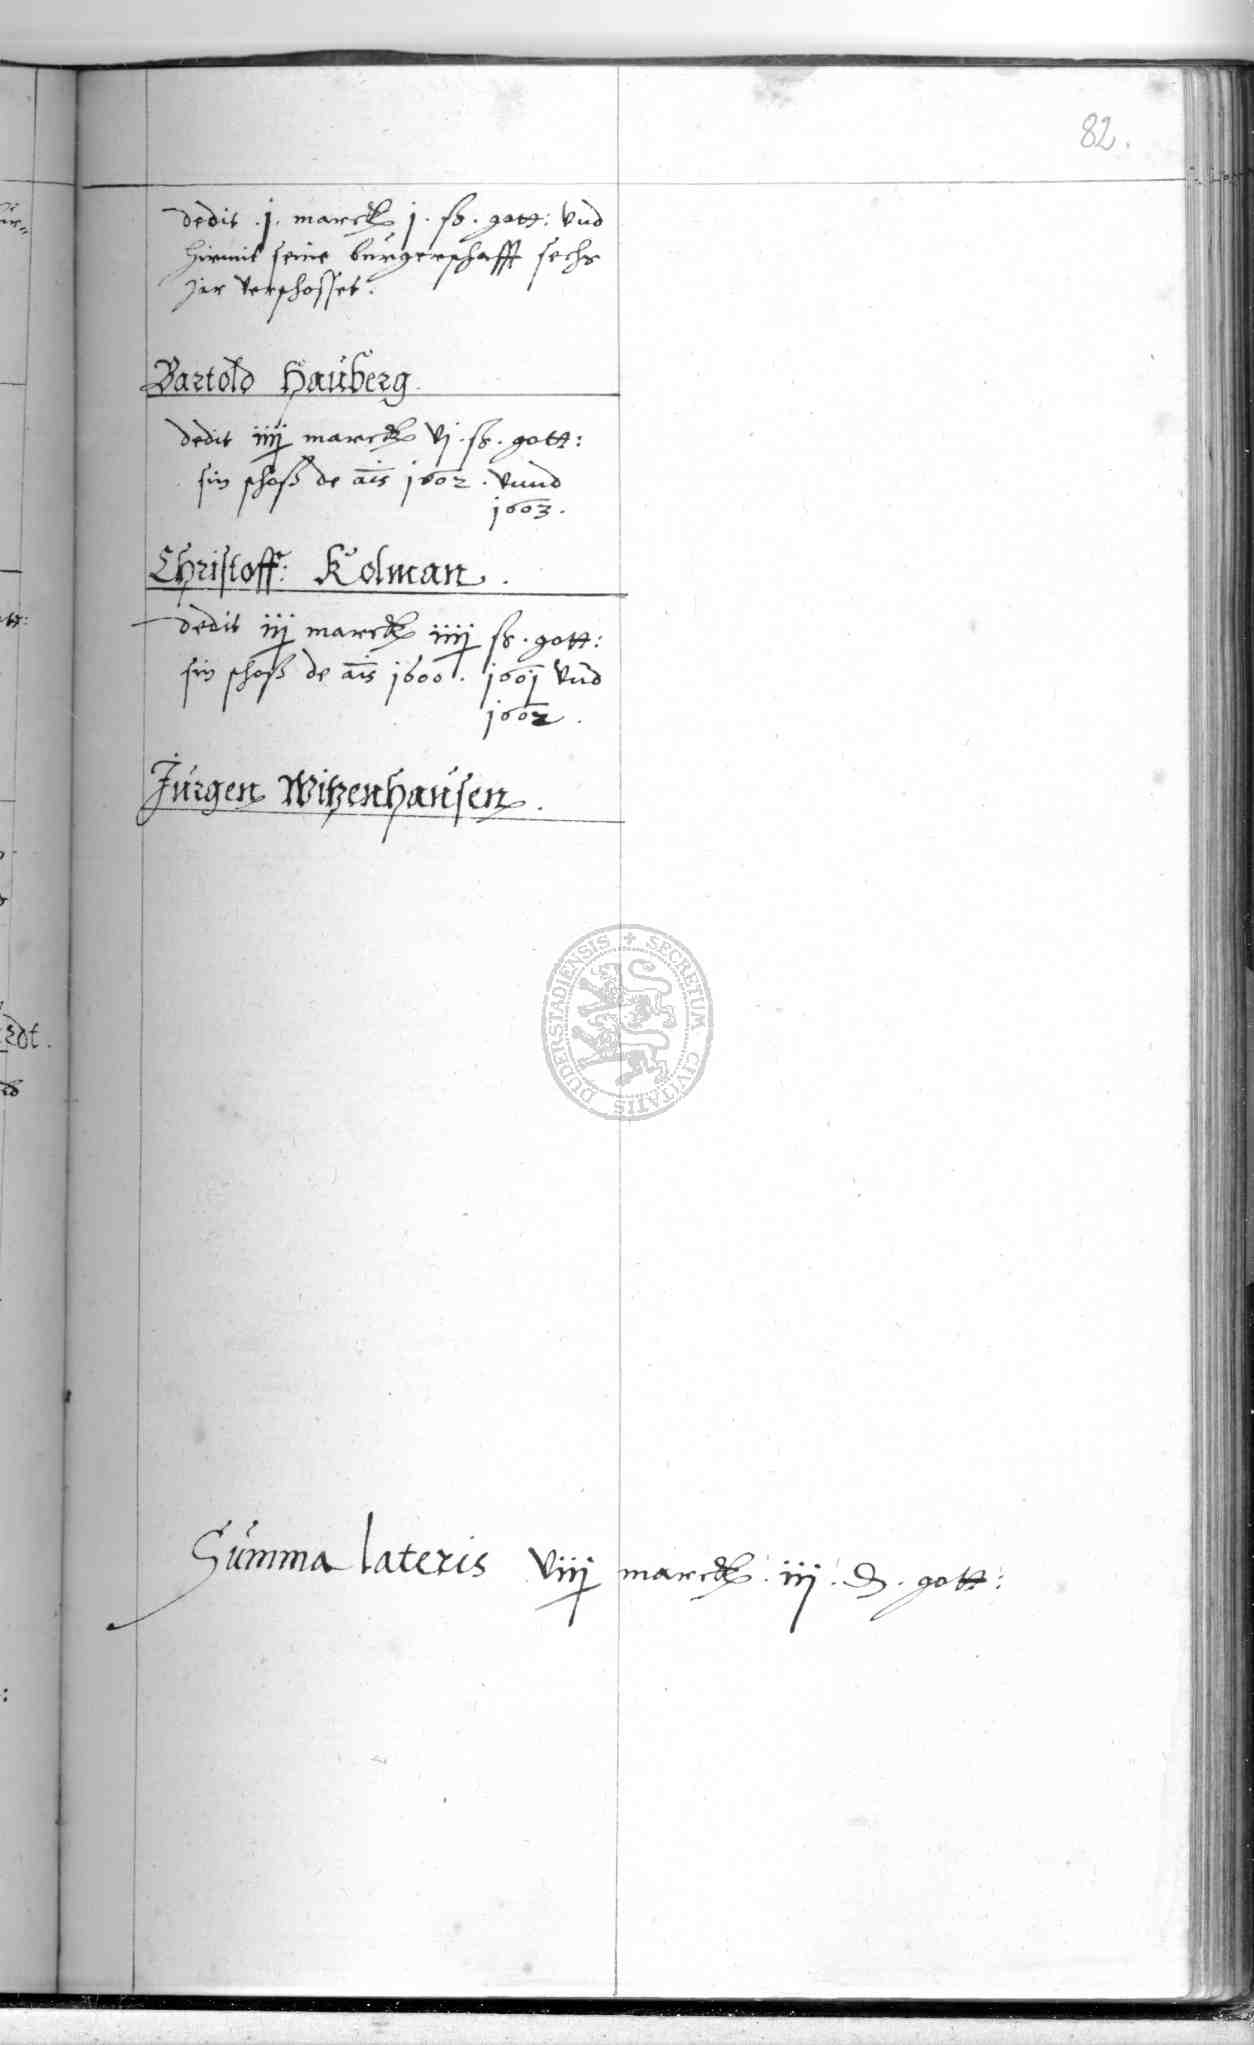 82.
dedit .j. marck j. ß. gott: vnd
hirmit seine burgerschafft sechs
Jar verschosset.
Bartold Hauberg.
dedit iiij marck vj. ß. gott:
sin schoß de ais 1602. vnnd
1603.
Christoff: Kolman.
dedit iij marck iiij ß. gott:
sin schoß de ais 1600. 1601 vnd
1602.
Jurgen Witzenhausen.
SECRETUM CIVITATIS DUDERSTADIENSIS
Summa lateris viij marck. iij. d. gott: